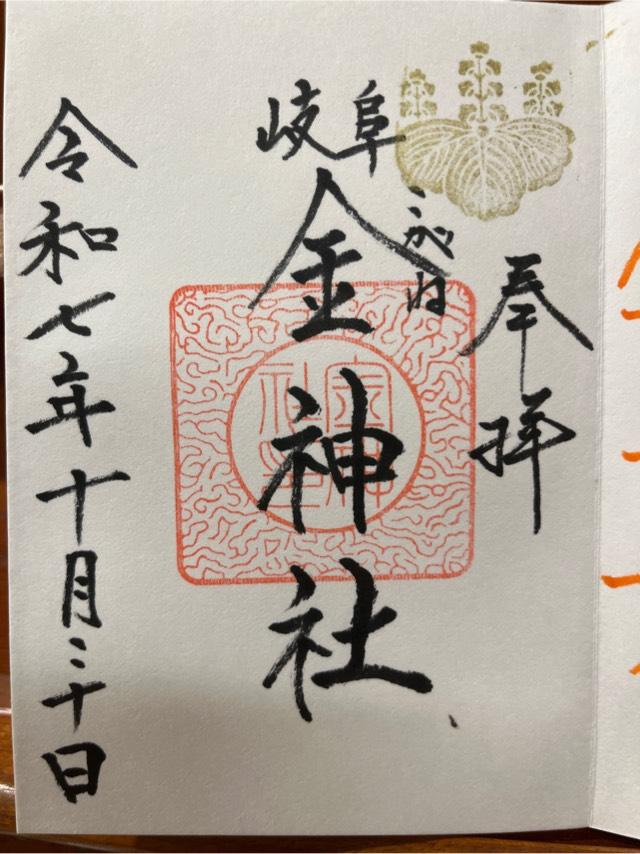 奉拝
岐阜
金神社
こがね
令和七年十月二十日